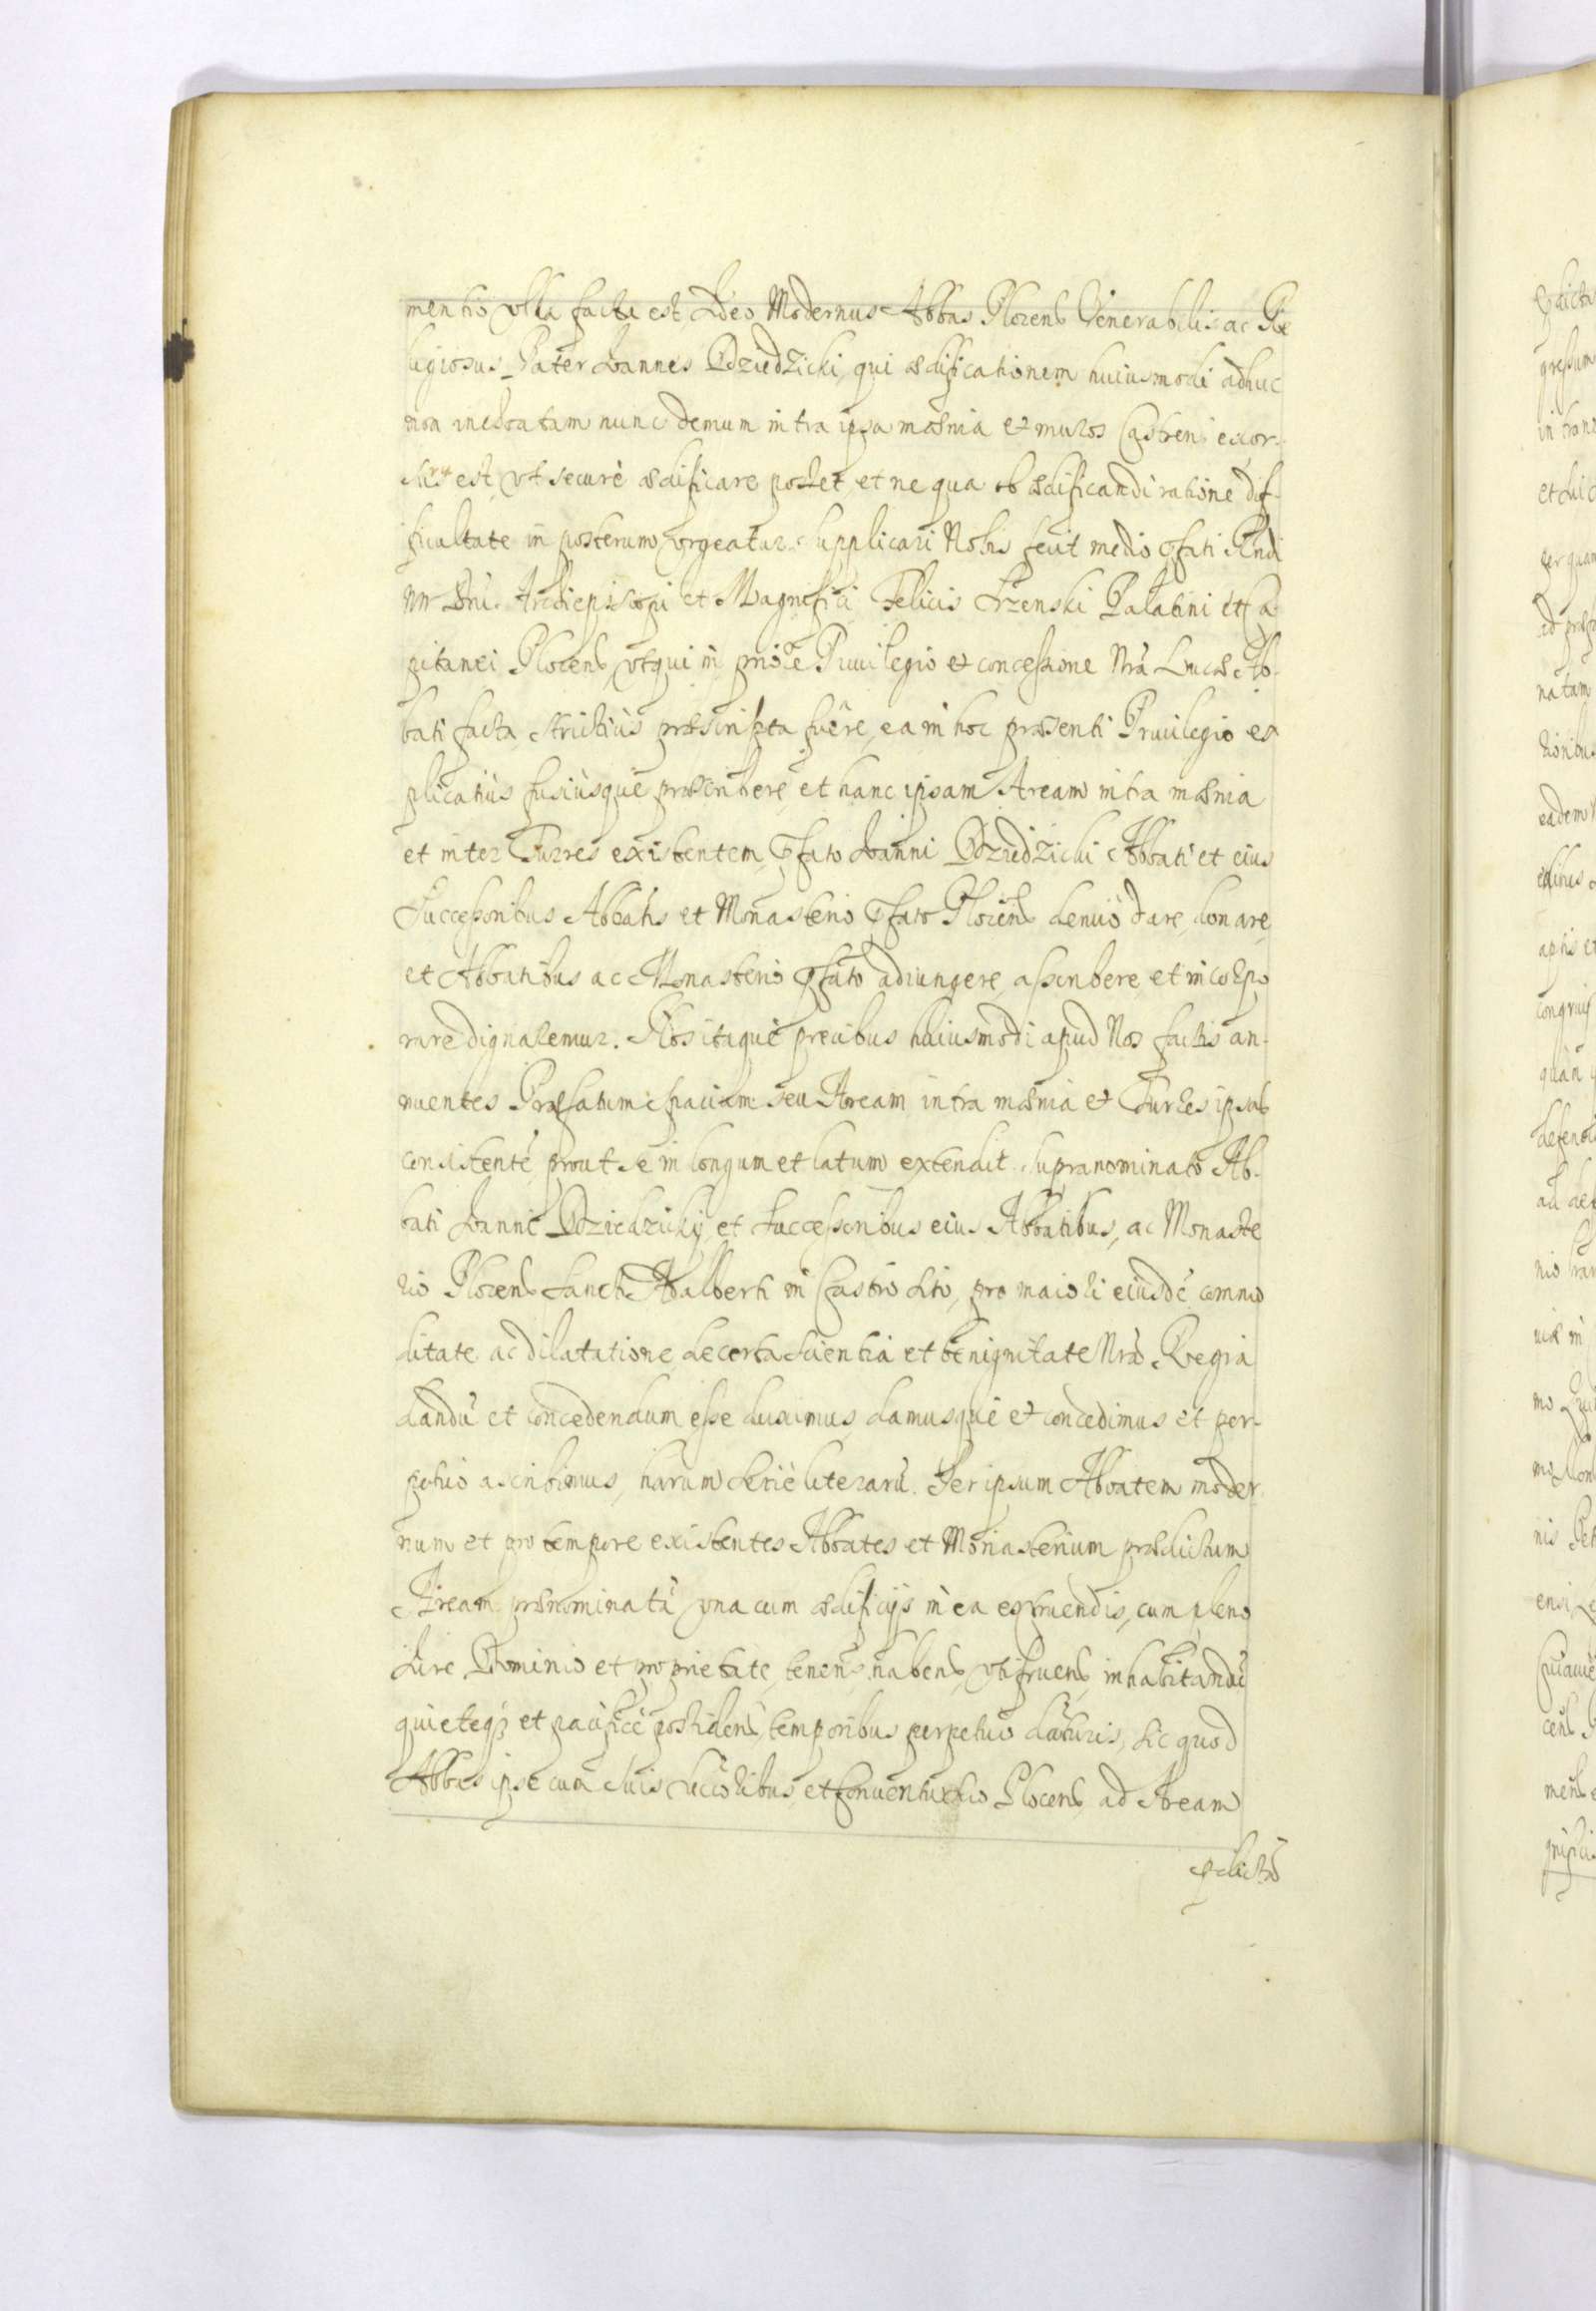 mentio vlla facta est Ideo Modernus Abbas Plocens Venerabilis ac Re
ligiosus Pater Joannes Dziedzicki, qui ædificationem huiusmodi adhuc
non inchoatam nunc demum intra ipsa mœnia et muros Castrens exor-
est, vt securè ædificare posset, et ne qua ob ædificandi ratione dif-
ficultate in posterum vrgeatur supplicari Nobis fecit medio pfati Rndi
Dni Archiepiscopi et Magnifici Felicis Srzenski Palatini et Ca-
pitanei Plocens, vt qui in priore Priuilegio et concessione Nra Lucæ Ab-
bati facta strictiùs præscripta fuêre, ea in hoc præsenti Priuilegio ex
plicatiùs fusiùsque præscribere, et hanc ipsam Aream intra mœnia
et inter Turres existentem, pfato Joanni Dziedzicki Abbati et eius
Successoribus Abbatis et Monasterio pfato Plocens denuò dare, donare,
et Abbatibus ac Monasterio pfato adiungere, asscribere, et incorpo
rare dignaremur. Nos itaque precibus huiusmodi apud Nos factis an-
nuentes Præfatum spacium seu Aream intra mœnia et Turres ipsas
consistentē, prout se in longum et latum extendit, supranominato Ab-
bati Joanni Dziedzicky et Successoribus eius Abbatibus, ac Monaste
rio Plocens Sancti Adalberti in Castro sito, pro maiori eiusdē commo
ditate ac dilatatione, de certa scientia et benignitate Nra Regia
dandū et concedendum esse duximus, damusque et concedimus et per-
petuò ascribimus, harum serie literarū. Per ipsum Abbatem moder
num et pro tempore existentes Abbates et Monasterium prædictum
Aream prænominatā vna cum ædificijs in ea extruendis, cum pleno
Iure Dominio et proprietate, tenens, habens, vtifruens, inhabitandū
quieteqз et pacificè possidens, temporibus perpetuò daturis, sic quod
Abbas ipse cum suis Successoribus, et Conuentu suo Plocens ad Aream
pdictā